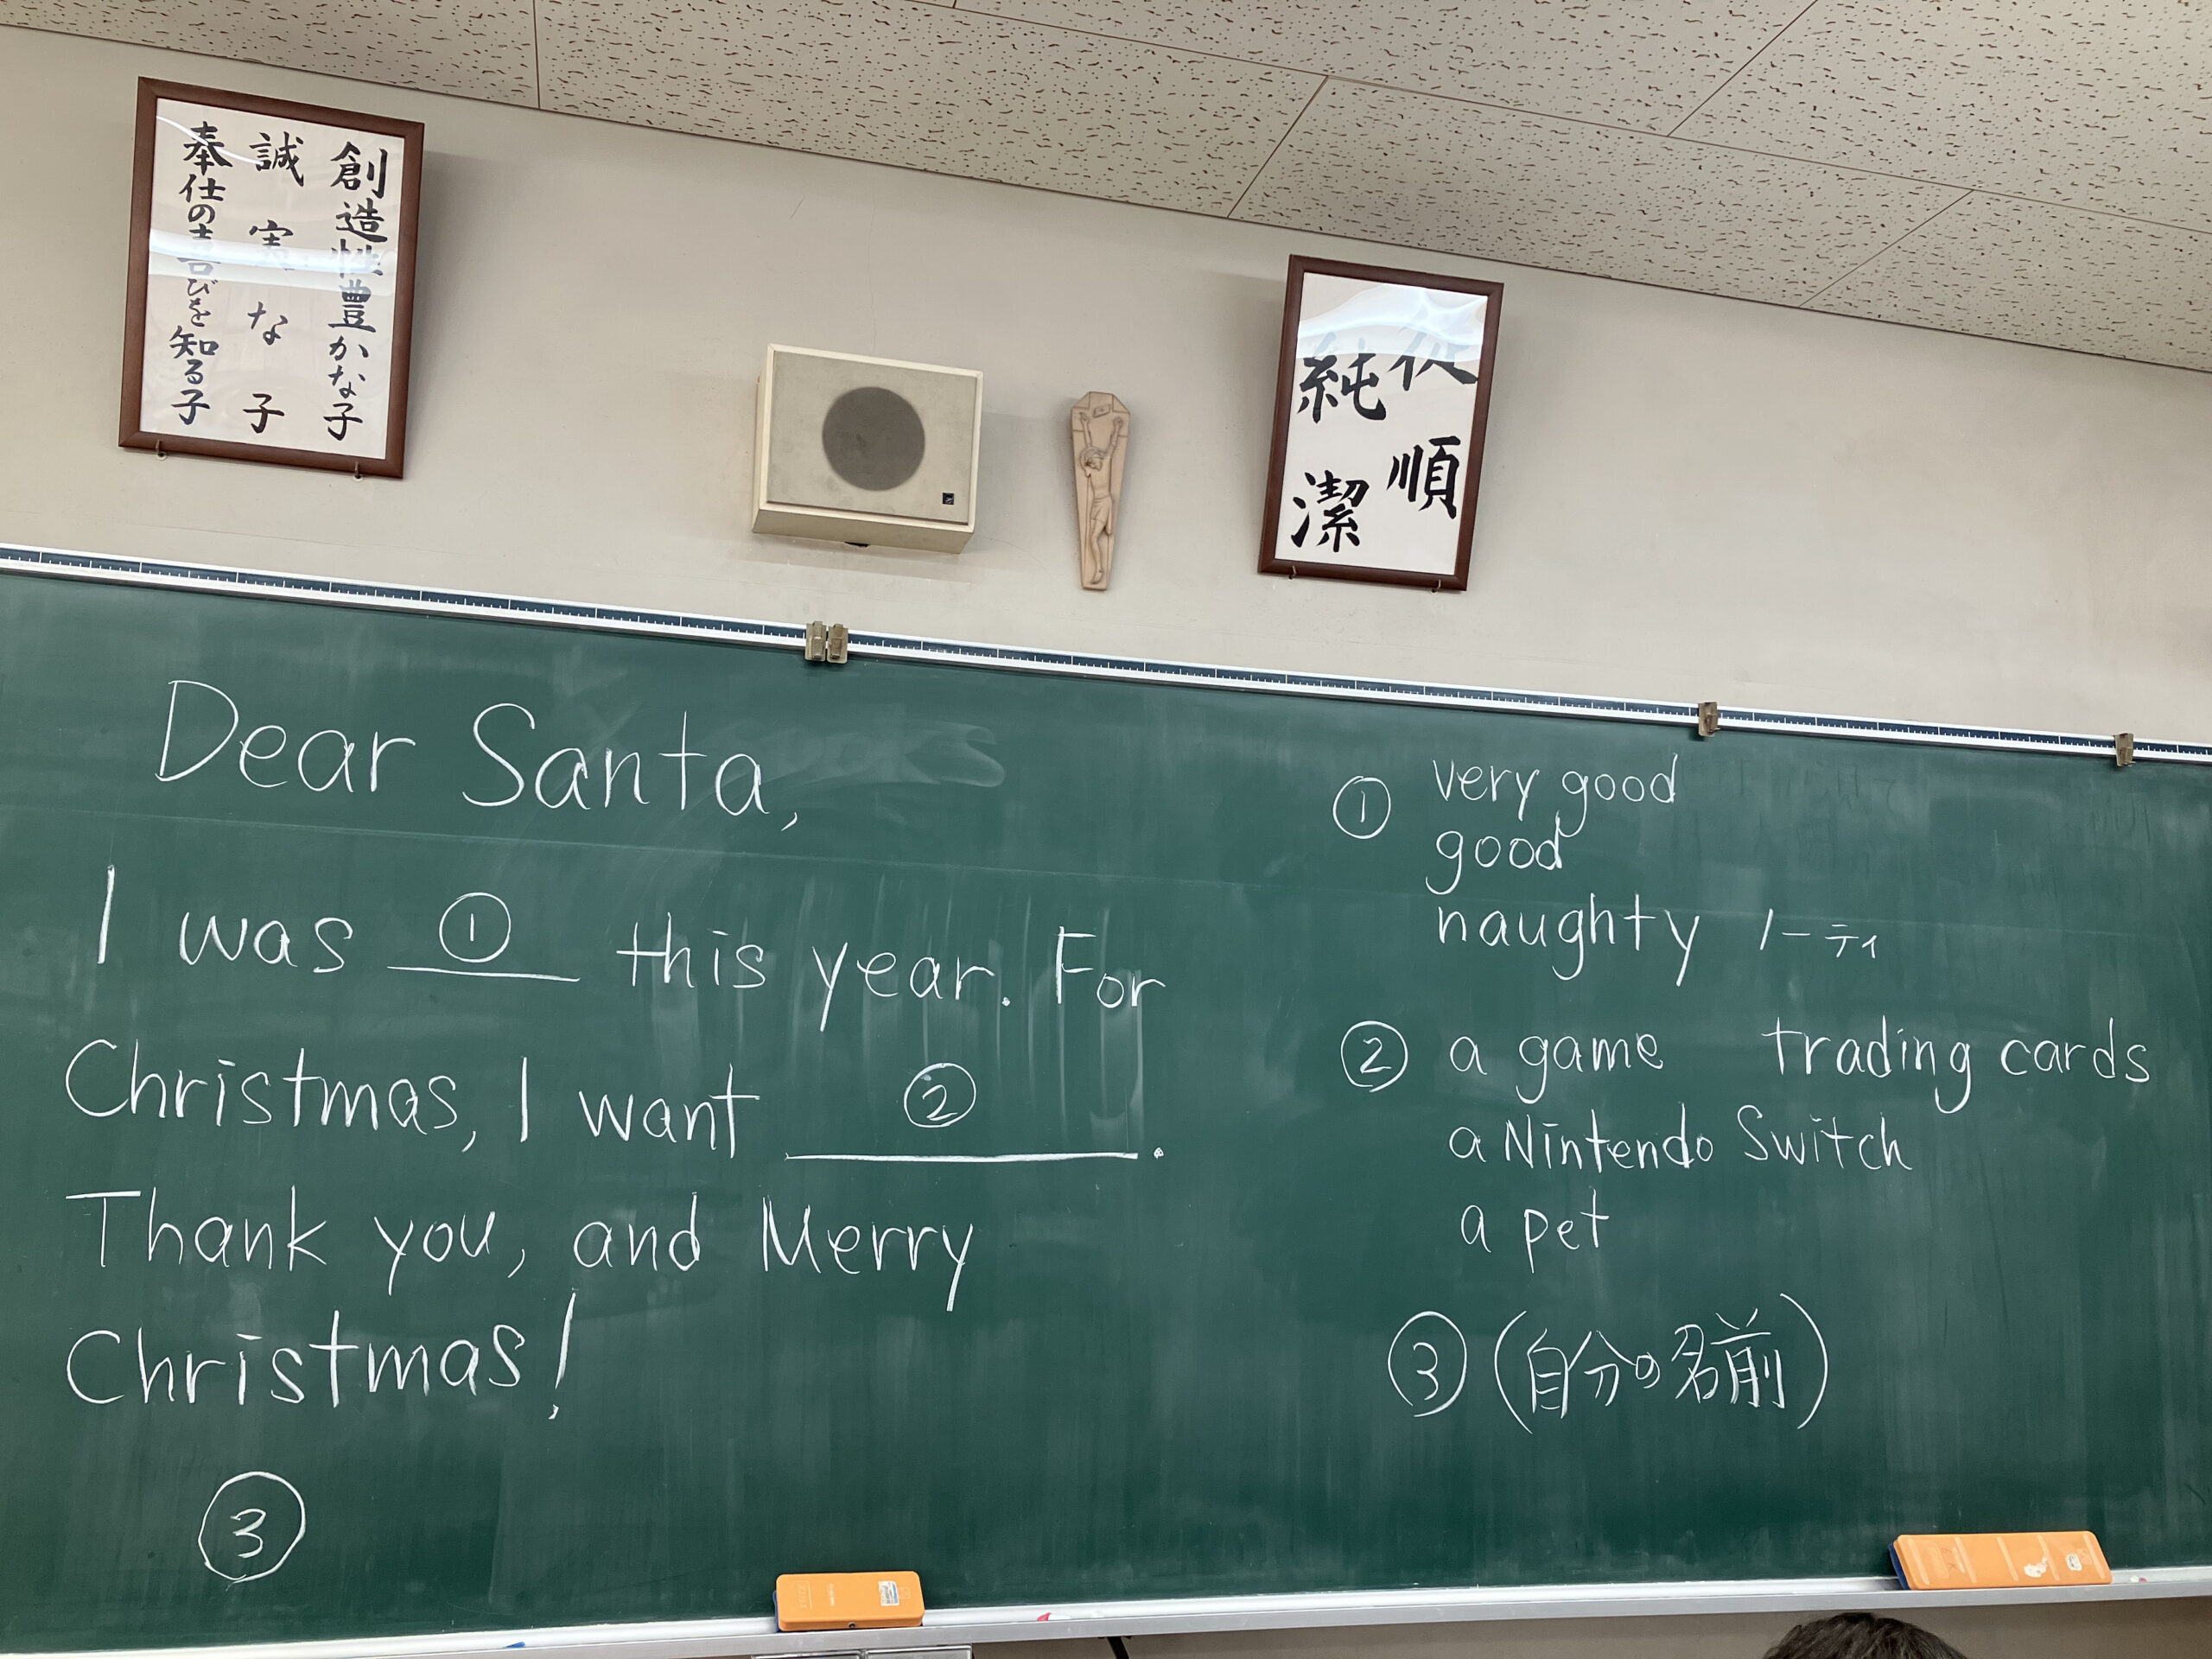 創造性豊かな子
誠実な子
奉仕の喜びを知る子
従順
純潔
Dear Santa,
I was ① this year. For
Christmas, I want ②.
Thank you, and Merry
Christmas!
③
① very good
good
naughty ノーティ
② a game trading cards
a Nintendo Switch
a pet
③ (自分の名前)